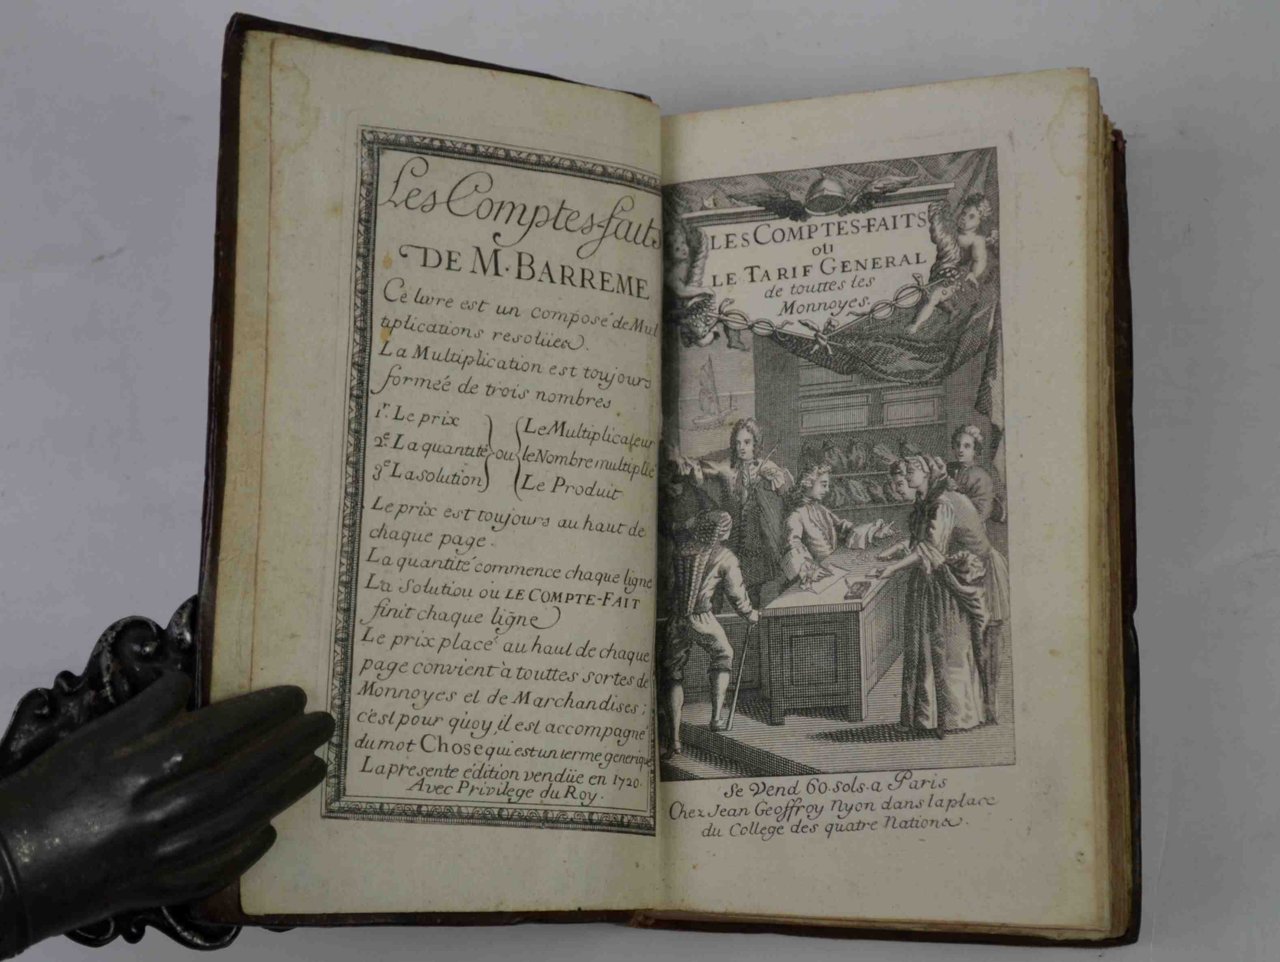 Les Comptes-faits
DE M. BARREME
Ce livre est un composé de Mul
tiplications resolües.
La Multiplication est toujours
formeé de trois nombres
1r. Le prix
2e. La quantité
3e La solution
ou
Le Multiplicateur
le Nombre multiplié
Le Produit
Le prix est toujours au haut de
chaque page.
La quantité commence chaque ligne
La Solution ou LE COMPTE-FAIT
finit chaque ligne
Le prix placé au haut de chaque
page convient à touttes sortes de
Monnoyes et de Marchandises;
c'est pour quoy, il est accompagné
du mot Chose qui est un terme generique
La presente édition vendüe en 1720.
Avec Privilege du Roy.
LES COMPTES-FAITS
OU
LE TARIF GENERAL
de touttes les
Monnoyes.
Se Vend 60 sols a Paris
Chez Jean Geoffroy Nyon dans la place
du College des quatre Nations.